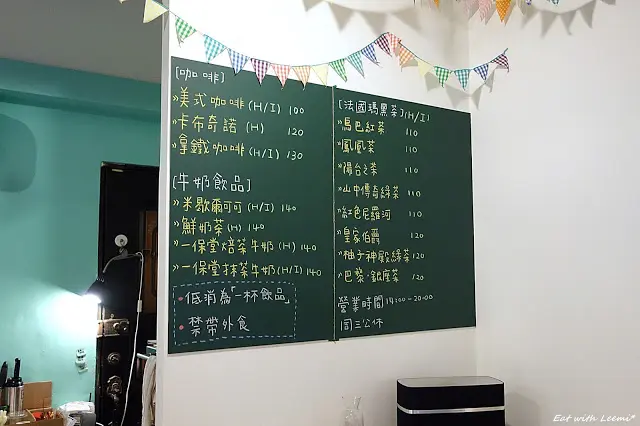 [咖啡]
»美式咖啡(H/I) 100
»卡布奇諾 (H) 120
»拿鐵咖啡(H/I) 130
[牛奶飲品]
»米歇爾可可 (H/I) 140
»鮮奶茶(H) 140
»一保堂焙茶牛奶(H) 140
»一保堂抹茶牛奶(H/I) 140
•低消為「一杯飲品」
•禁帶外食
[法國瑪黑茶](H/I)
»烏巴紅茶 110
»鳳凰茶 110
»陽台之茶 110
»山中傳奇綠茶 110
»紅色尼羅河 110
»皇家伯爵 120
»柚子神殿綠茶 120
»巴黎·銀座茶 120
營業時間 14:00-20:00
三公休
Eat with Leemi*